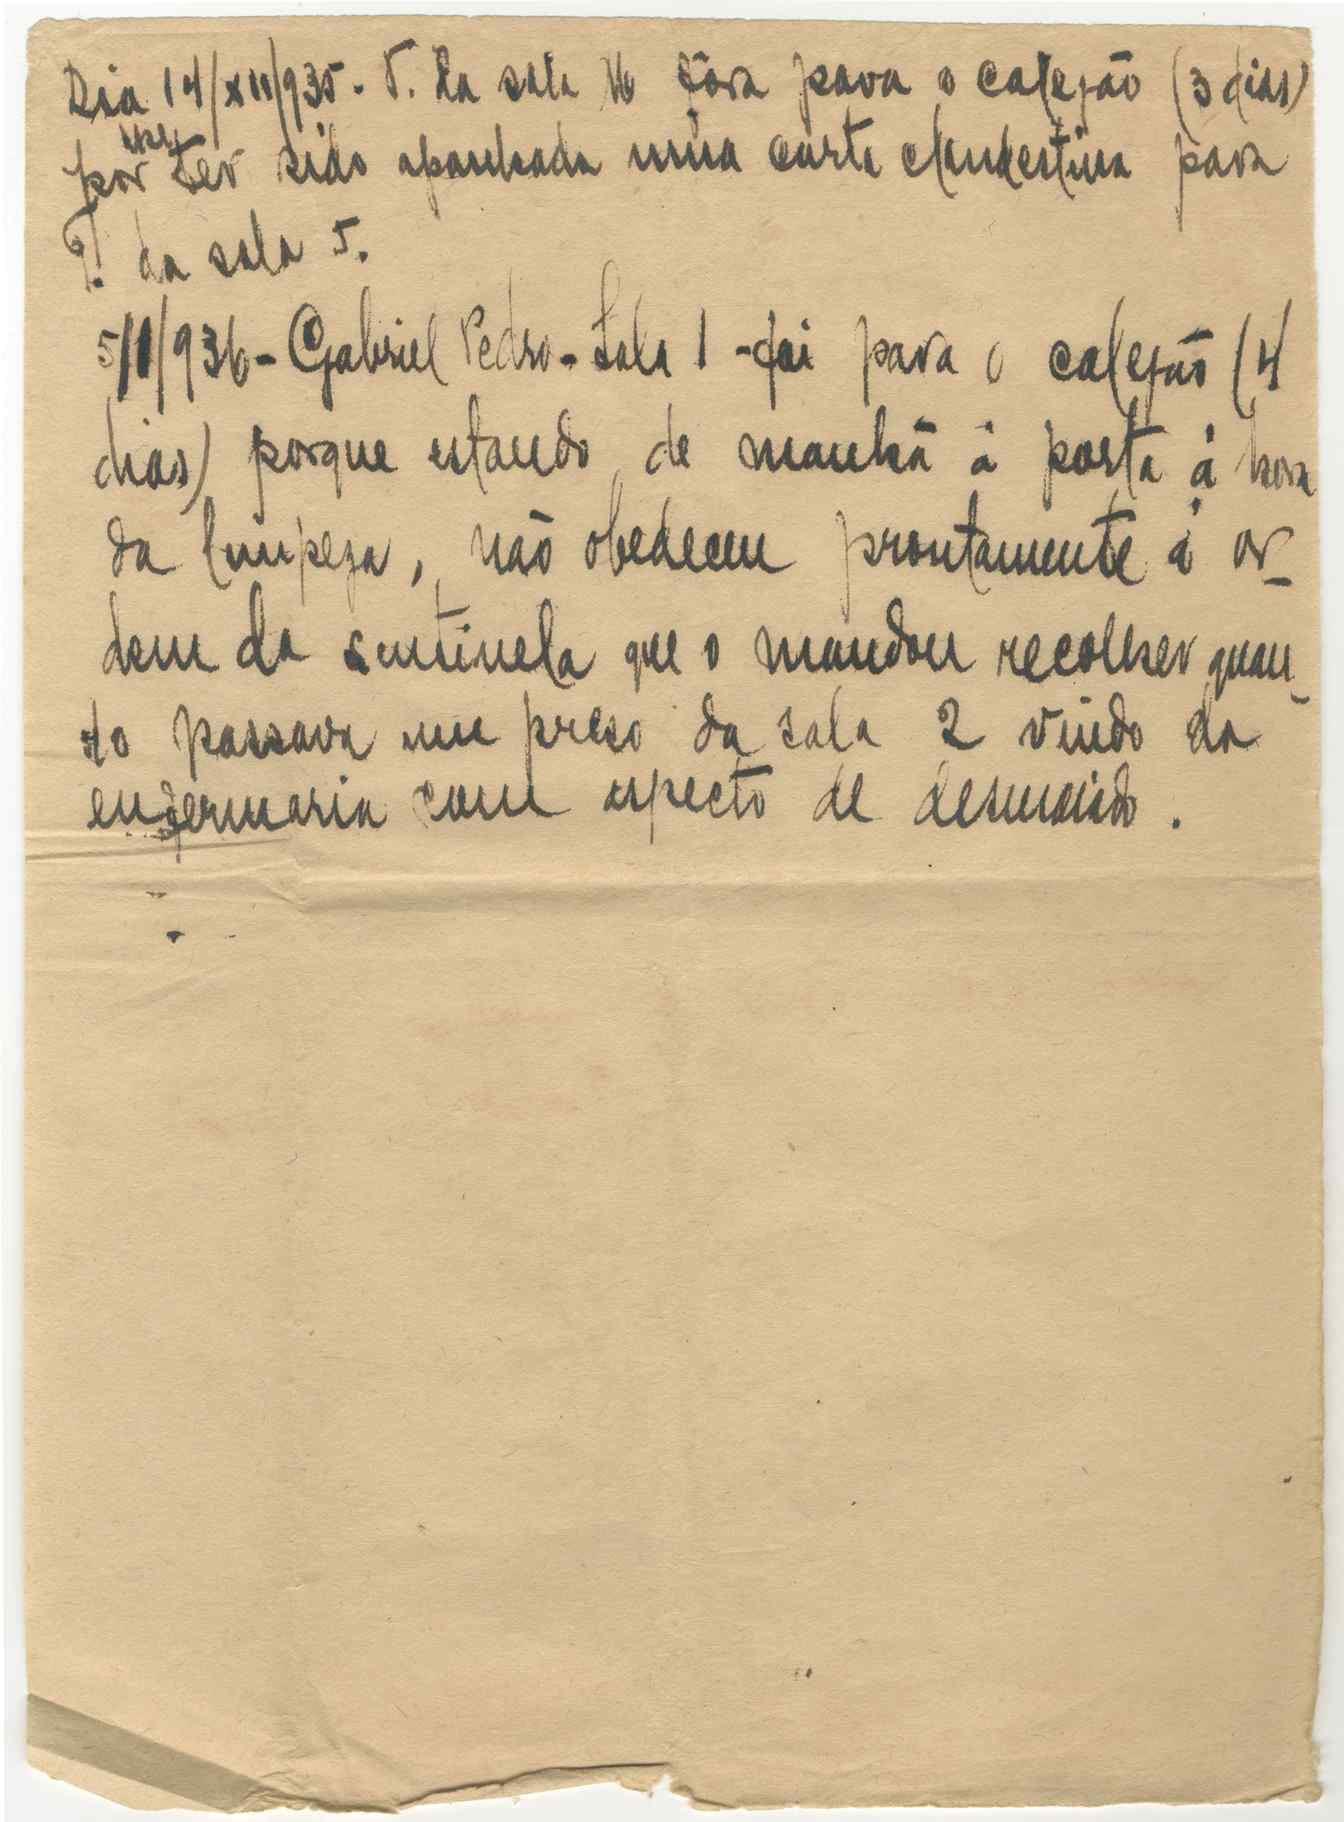 Dia 14/XII/935. T. da sala fôra para o calejão (3 dias)
por lhe ter sido apanhada uma carta clandestina para
T. da sala 5.
5/1/936 - Gabriel Pedro - Sala 1 - foi para o calejão (4
dias) porque estando de manhã á porta á hora
da limpeza, não obedeceu prontamente á or-
dem da sentinela que o mandou recolher quan-
do passava um preso da sala 2 vindo da
enfermaria com aspecto de desmaiado.